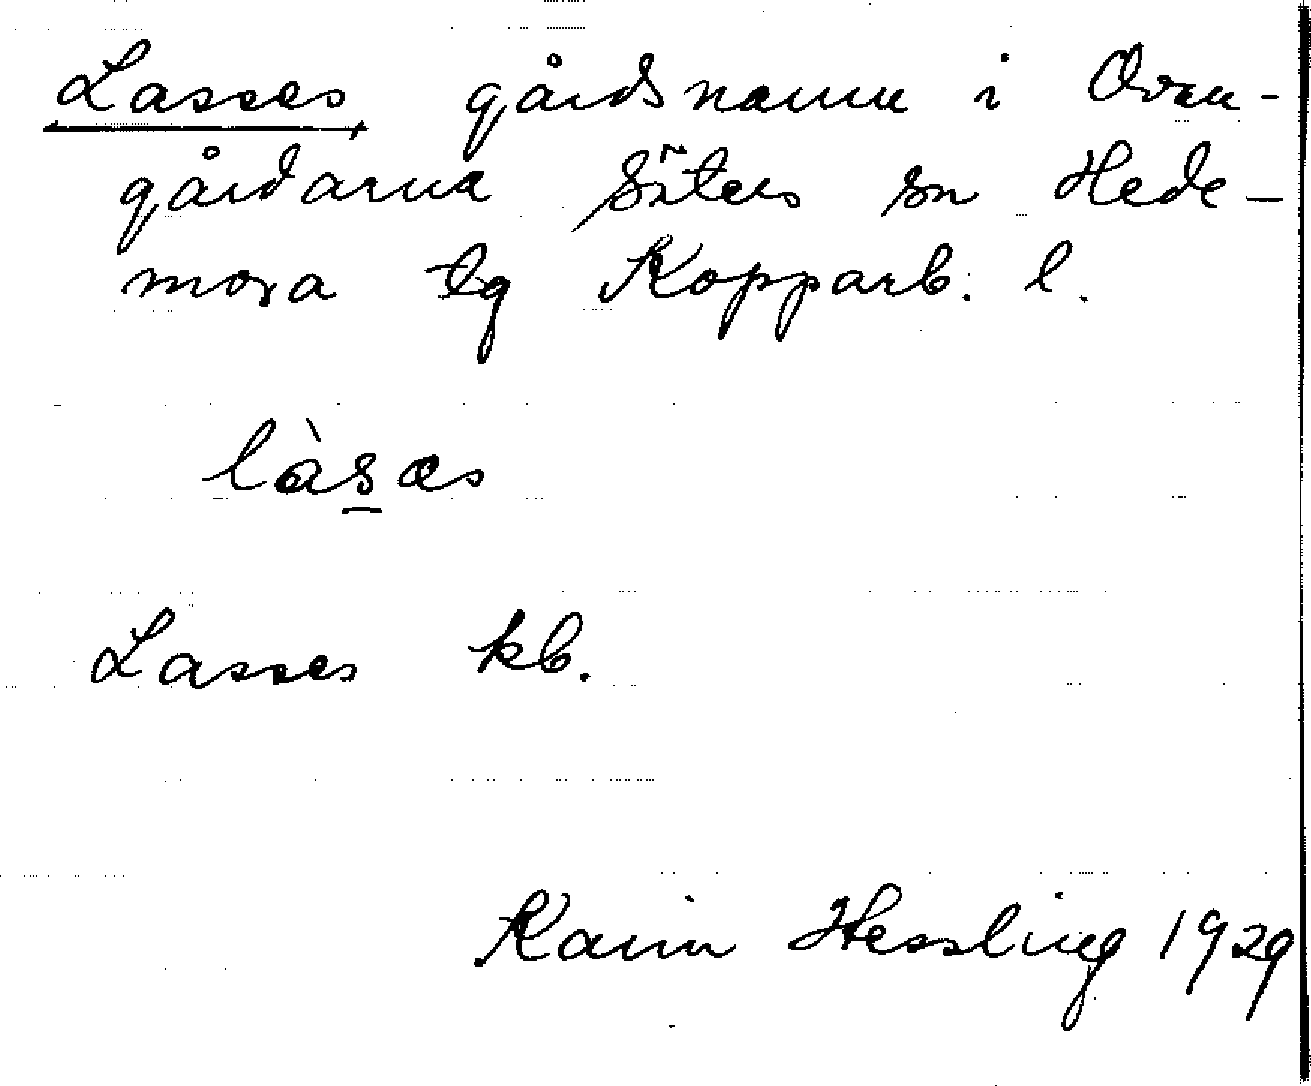 Lasses gårdsnamn i Ovan-
gårdarna Säters sn Hede-
mora tg Kopparb. l.
làs̲æs
Lasses kb.
Karin Hessling 1929